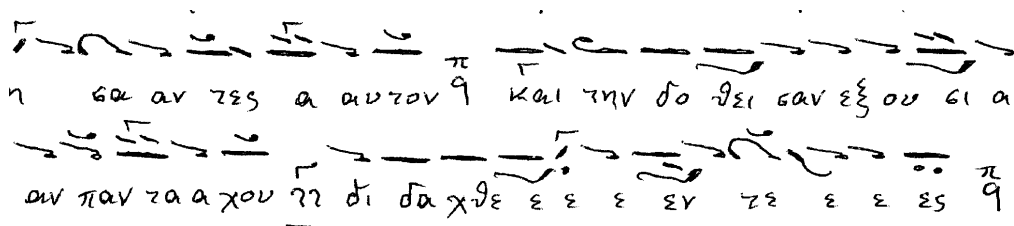 η σα αν τες α αυτον π q και την δο θει σαν εξ ου σι α
αν παν τα α χου δι δα χθε ε ε ε εν τε ε ε ες π q